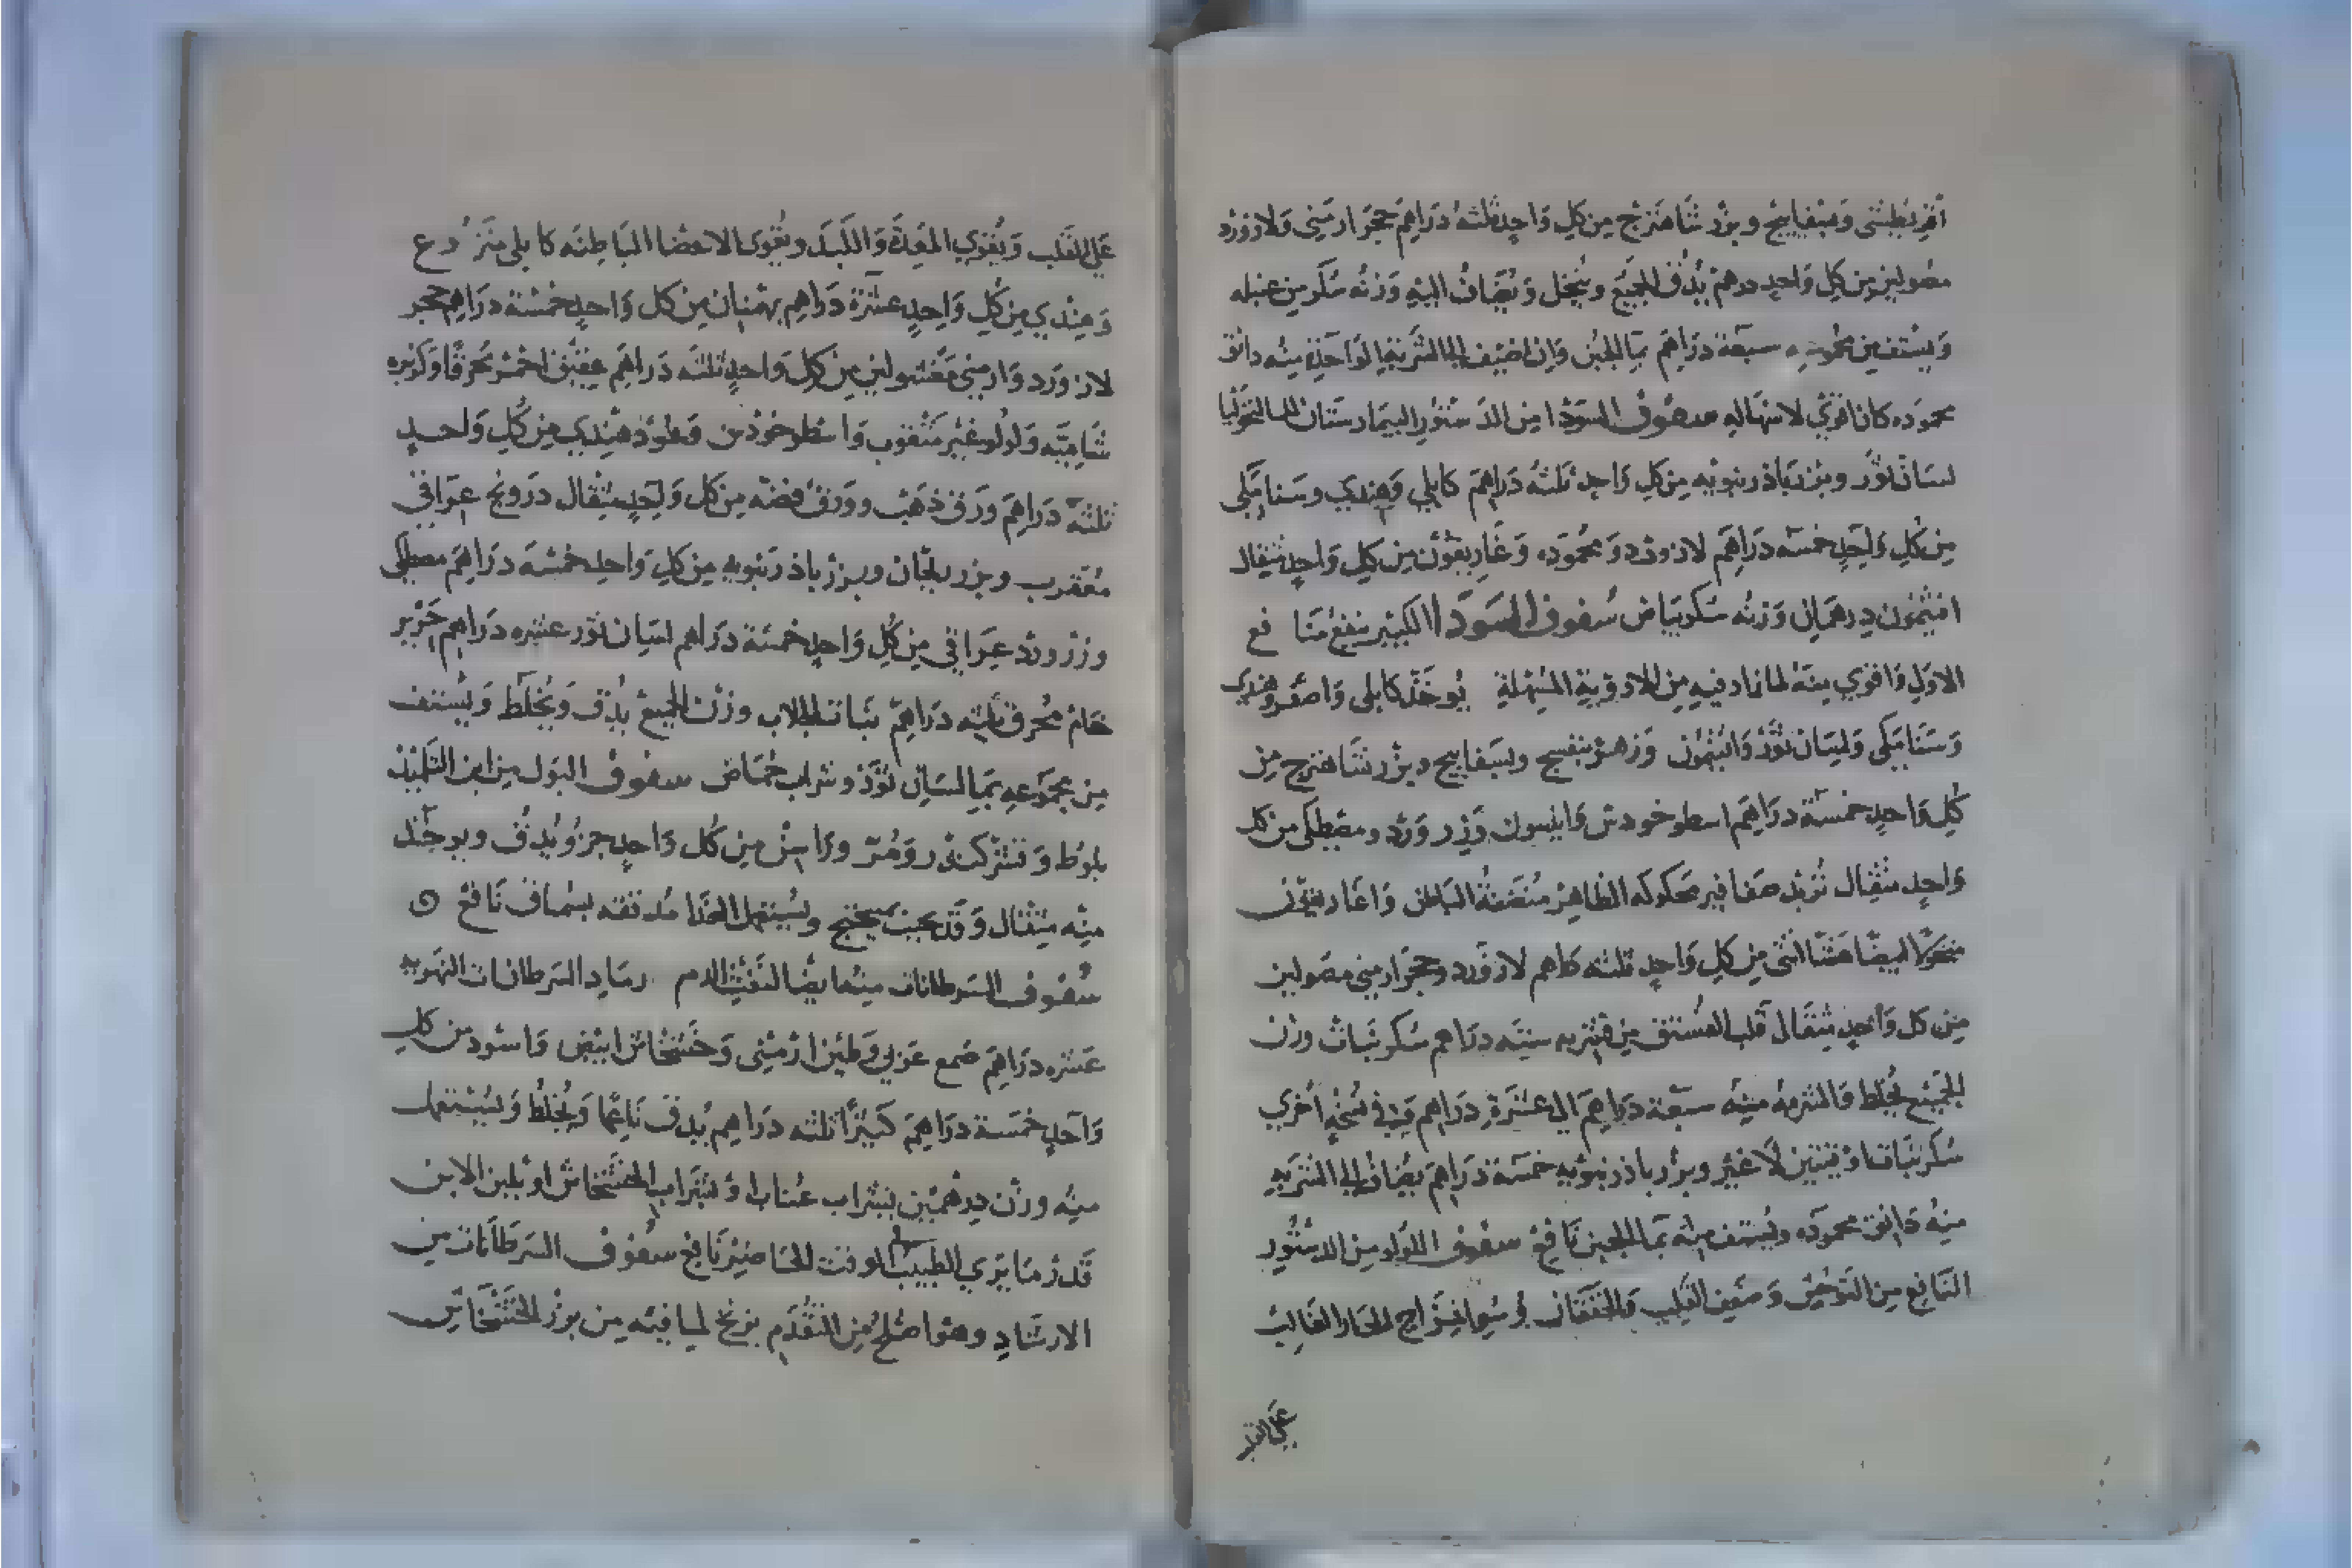 أقريطشي وبسفايج وبزر شاهترج من كل واحد ثلثه دراهم حجر ارمني ولازورد
مصولين من كل واحد درهم يدق الجميع وينخل ويضاف اليه وزنه سكر
ويستف من مجموعه سبعة دراهم بما الجبن وان اضيف الى الشربة الواحدة منه دانق
محموده كان اقوي لاسهاله سفوف السودا من الدستور البيمارستان للمالنخوليا
لسان ثور وبزر باذرنبويه من كل واحد ثلثه دراهم كابلي وهندي وسنا مكي
من كل واحد خمسه دراهم لازورد ومحموده وغاريقون من كل واحد مثقال
افتيمون درهمان وزنه سكر بياض سفوف السودا الكبير ينفع منا فع
الاول واقوي منه لما زاد فيه من الادوية المسهلة يوخذ كابلي واصفر وهندي
وسنا مكي ولسان ثور وافتيمون وزهر بنفسج وبسفايج وبزر شاهترج من
كل واحد خمسة دراهم اسطوخودس وانيسون وزر ورد ومصطكي من كل
واحد مثقال تربد محكوكه الظاهر الباطن واغاريقون
انثى من كل واحد ثلثه دراهم لازورد وحجر ارمني مصولين
من كل واحد مثقال قلب الفستق من قشره سته دراهم سكر نبات وزن
الجميع يخلط والشربة منه سبعة دراهم الى عشرة دراهم وفي نسخه أخري
سكر نبات اوقيتين لا غير وبزر باذرنبويه خمسة دراهم يضاف الى الشربه
منه دانق محموده ويستف منه بما الجبن نافع سفوف اللولو من الدستور
النافع من التوحش وضعف القلب والخفقان وسوا مزاج الحار الغالب
على القلب
على القلب ويقوي المعدة والكبد ويقوى الاعضا الباطنه كابلي منزوع
وهندي من كل واحد عشرة دراهم بهمنان من كل واحد خمسة دراهم حجر
لازورد وارمني مغسولين من كل واحد ثلثه دراهم عقيق احمر محرقا وكزبره
شاميه ولولو غير مثقوب واسطوخودس وعود هندي من كل واحد
ثلثة دراهم ورق ذهب وورق فضه من كل واحد مثقال درونج عراقي
معقرب وبزر ريحان وبزر باذرنبويه من كل واحد خمسة دراهم مصطكي
وزر ورد عراقي من كل واحد خمسة دراهم لسان ثور عشره دراهم حرير
خام محرق ثلثه دراهم نبات الجلاب وزن الجميع يدق ويخلط ويستف
من مجموعه بما لسان ثور وشراب حماض سفوف البول من ابن التلميذ
بلوط وقشر كندر ومر وراسن من كل واحد جزو يدق ويوخذ
منه مثقال وقد يعجن بميبختج ويستعمل الغذا مدققه بسماق نافع
سفوف السرطانات منها ايضا لنفث الدم رماد السرطانات النهريه
عشره دراهم صمع عربي وطين ارمني وخشخاش ابيض واسود من كل
واحد خمسة دراهم كثيرا ثلثه دراهم يدق ناعما ويخلط ويستعمل
منه وزن درهمين بشراب عناب او شراب الخشخاش او بلبن الاتن
قدر ما يري الطبيب الوقت الحاضر نافع سفوف السرطانات من
الارشاد وهو اصلح من التقدم لما فيه من بزر الخشخاش